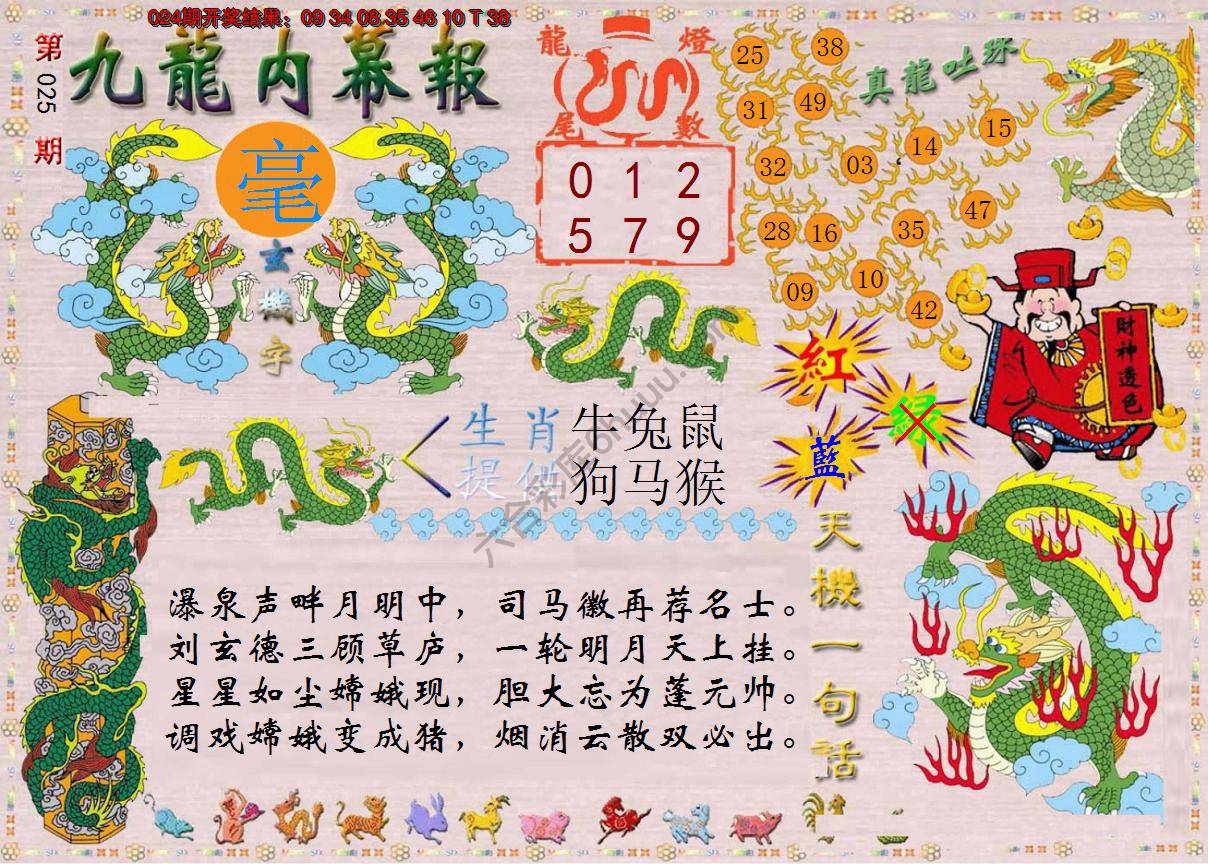 024期开奖结果：09 34 08 35 46 10 T 38
第025期
九龍内幕報
毫
玄機字
龍燈
尾數
0 1 2
5 7 9
真龍吐珠
25
38
31
49
32
03
14
15
28
16
35
47
09
10
42
財神透色
紅
绿
藍
生肖
提供
牛兔鼠
狗马猴
天機一句話
瀑泉声畔月明中，司马徽再荐名士。
刘玄德三顾草庐，一轮明月天上挂。
星星如尘嫦娥现，胆大忘为蓬元帅。
调戏嫦娥变成猪，烟消云散双必出。